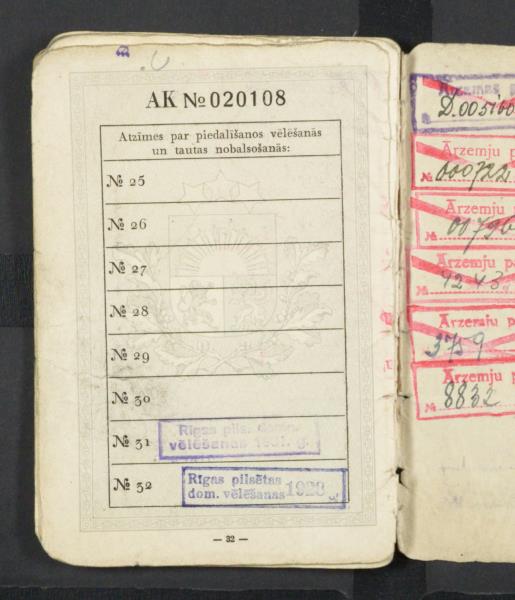 AK № 020108
Atzīmes par piedalīšanos vēlēšanās
un tautas nobalsošanās:
№ 25
№ 26
№ 27
№ 28
№ 29
№ 30
№ 31
Rīgas pils. dom.
vēlēšanas 1931. g.
№ 32
Rīgas pilsētas
dom. vēlēšanas 1928 g.
— 32 —
D.005100
Ārzemju p
№ 000722
Ārzemju
№ 00796
Ārzemju p
4243
Ārzemju p
3759
Ārzemju p
№ 8832